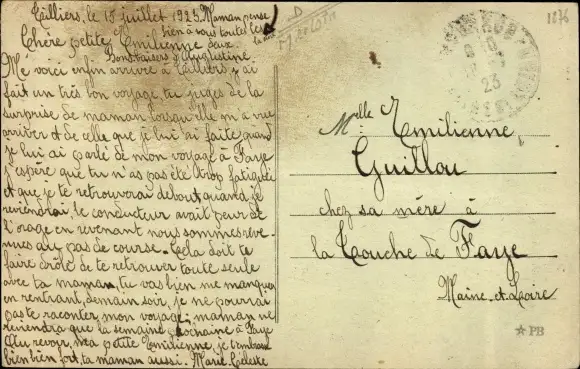 Tilliers, le 18 juillet 1923
Maman pense
bien à vous toutes les
deux
Chère petite Emilienne
Bons baisers d'Augustine
Me voici enfin arrivée à Tilliers, j'ai
fait un très bon voyage tu juges de la
surprise de maman lorsqu'elle m'a vue
arriver et de celle que je lui ai faite quand
je lui ai parlé de mon voyage à Faye
j'espère que tu n'as pas été trop fatiguée
et que je te retrouverai debout quand je
reviendrai, le conducteur avait peur de
l'orage en revenant nous sommes reve-
nues au pas de course. Cela doit te
faire drôle de te retrouver toute seule
avec ta maman, tu vas bien me manquer
en rentrant, demain soir, je ne pourrai
pas te raconter mon voyage. maman ne
reviendra que la semaine prochaine à Faye
Au revoir, ma petite Emilienne, je t'embrasse
bien bien fort, ta maman aussi. Marie Céleste
Melle Emilienne
Guillou
chez sa mère à
la Touche de Faye
Maine-et-Loire
23
1876
PB